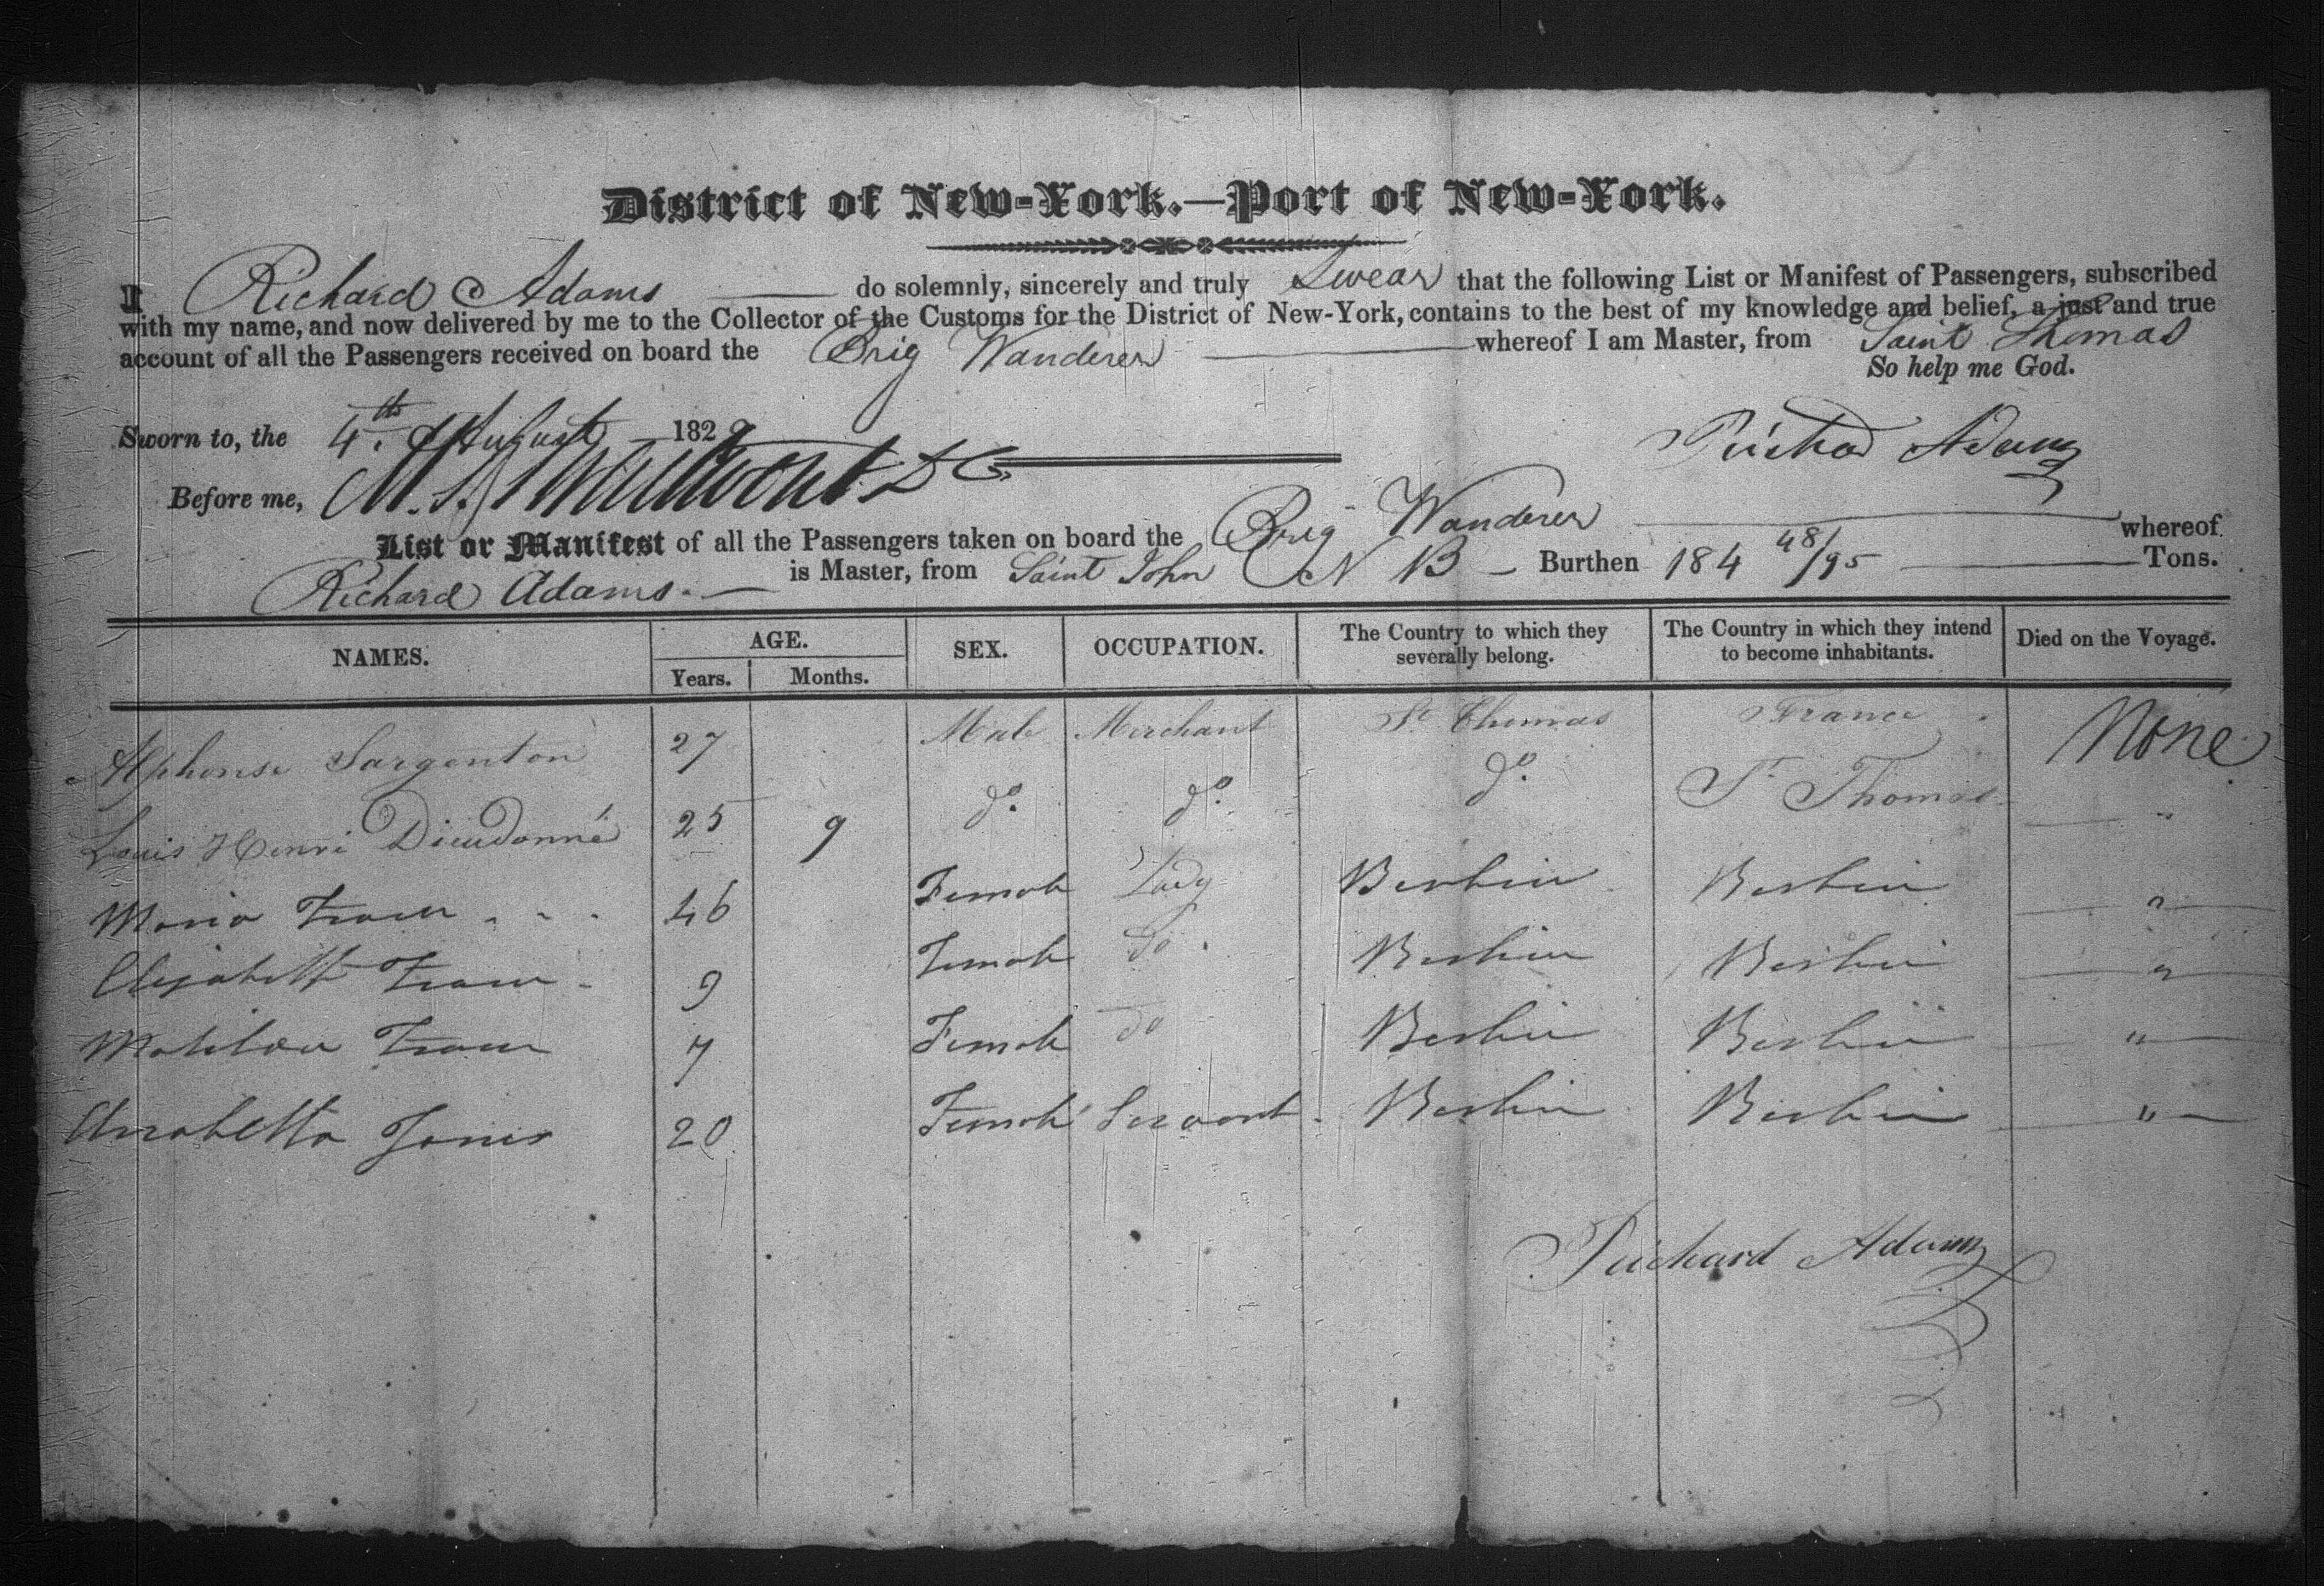 District of New-York.—Port of New-York.
I Richard Adams do solemnly, sincerely and truly Swear that the following List or Manifest of Passengers, subscribed
with my name, and now delivered by me to the Collector of the Customs for the District of New-York, contains to the best of my knowledge and belief, a just and true
account of all the Passengers received on board the Brig Wanderer whereof I am Master, from Saint Thomas
So help me God.
Sworn to, the 4th August 1829
Richard Adams
Before me,
List or Manifest of all the Passengers taken on board the Brig Wanderer whereof
Richard Adams is Master, from Saint John N B Burthen 184 48/95 Tons.
NAMES. AGE. SEX. OCCUPATION. The Country to which they severally belong. The Country in which they intend to become inhabitants. Died on the Voyage.
Years. Months.
Alphonse Sargenton 27 Male Merchant St Thomas France None
Louis Henri Dieudonné 25 9 do. do. do. St Thomas "
Maria 46 Female Lady "
Elizabeth 9 Female Do. "
Matilda 7 Female Do "
Jones 20 Female Servant "
Richard Adams